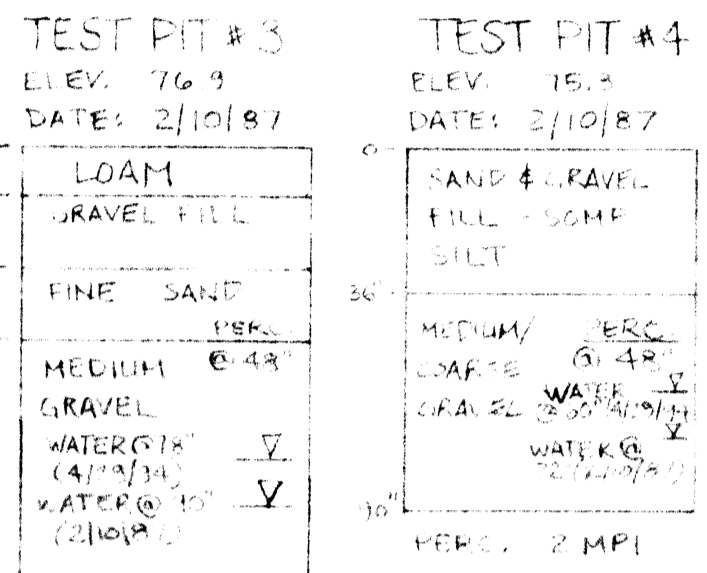 TEST PIT #3
ELEV. 76.9
DATE: 2/10/87
LOAM
GRAVEL FILL
FINE SAND
PERC.
@ 48"
MEDIUM
GRAVEL
WATER @
WATER @
TEST PIT #4
ELEV. 75.3
DATE: 2/10/87
0
SAND & GRAVEL
FILL - SOME
SILT
36"
MEDIUM/
COARSE
GRAVEL
PERC.
@ 48"
WATER
WATER @
90"
PERC. 2 MPI